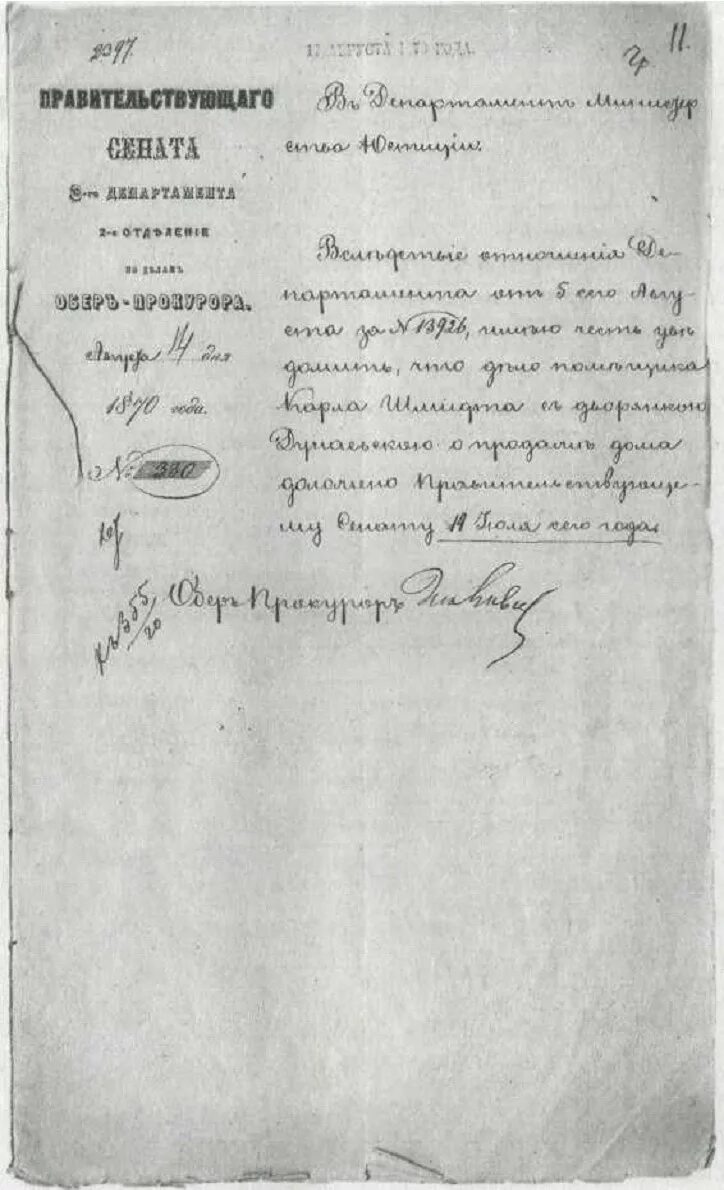 2397.
11.
ПРАВИТЕЛЬСТВУЮЩАГО
СЕНАТА
3-го ДЕПАРТАМЕНТА
2-е ОТДѢЛЕНІЕ
ПО ДѢЛАМЪ
ОБЕРЪ-ПРОКУРОРА.
Августа 14 дня
1870 года.
№ 330
Въ Департаментъ Министер
ства Юстиціи.
Вслѣдствіе отношенія Де-
партамента отъ 5 сего Авгу-
ста за № 13926, имѣю честь уве
домить, что дѣло помѣщика
Карла Шмидта съ дворянкою
Дунаевскою о продажѣ дома
доложено Правительствующе-
му Сенату 19 Іюля сего года.
Оберъ Прокуроръ